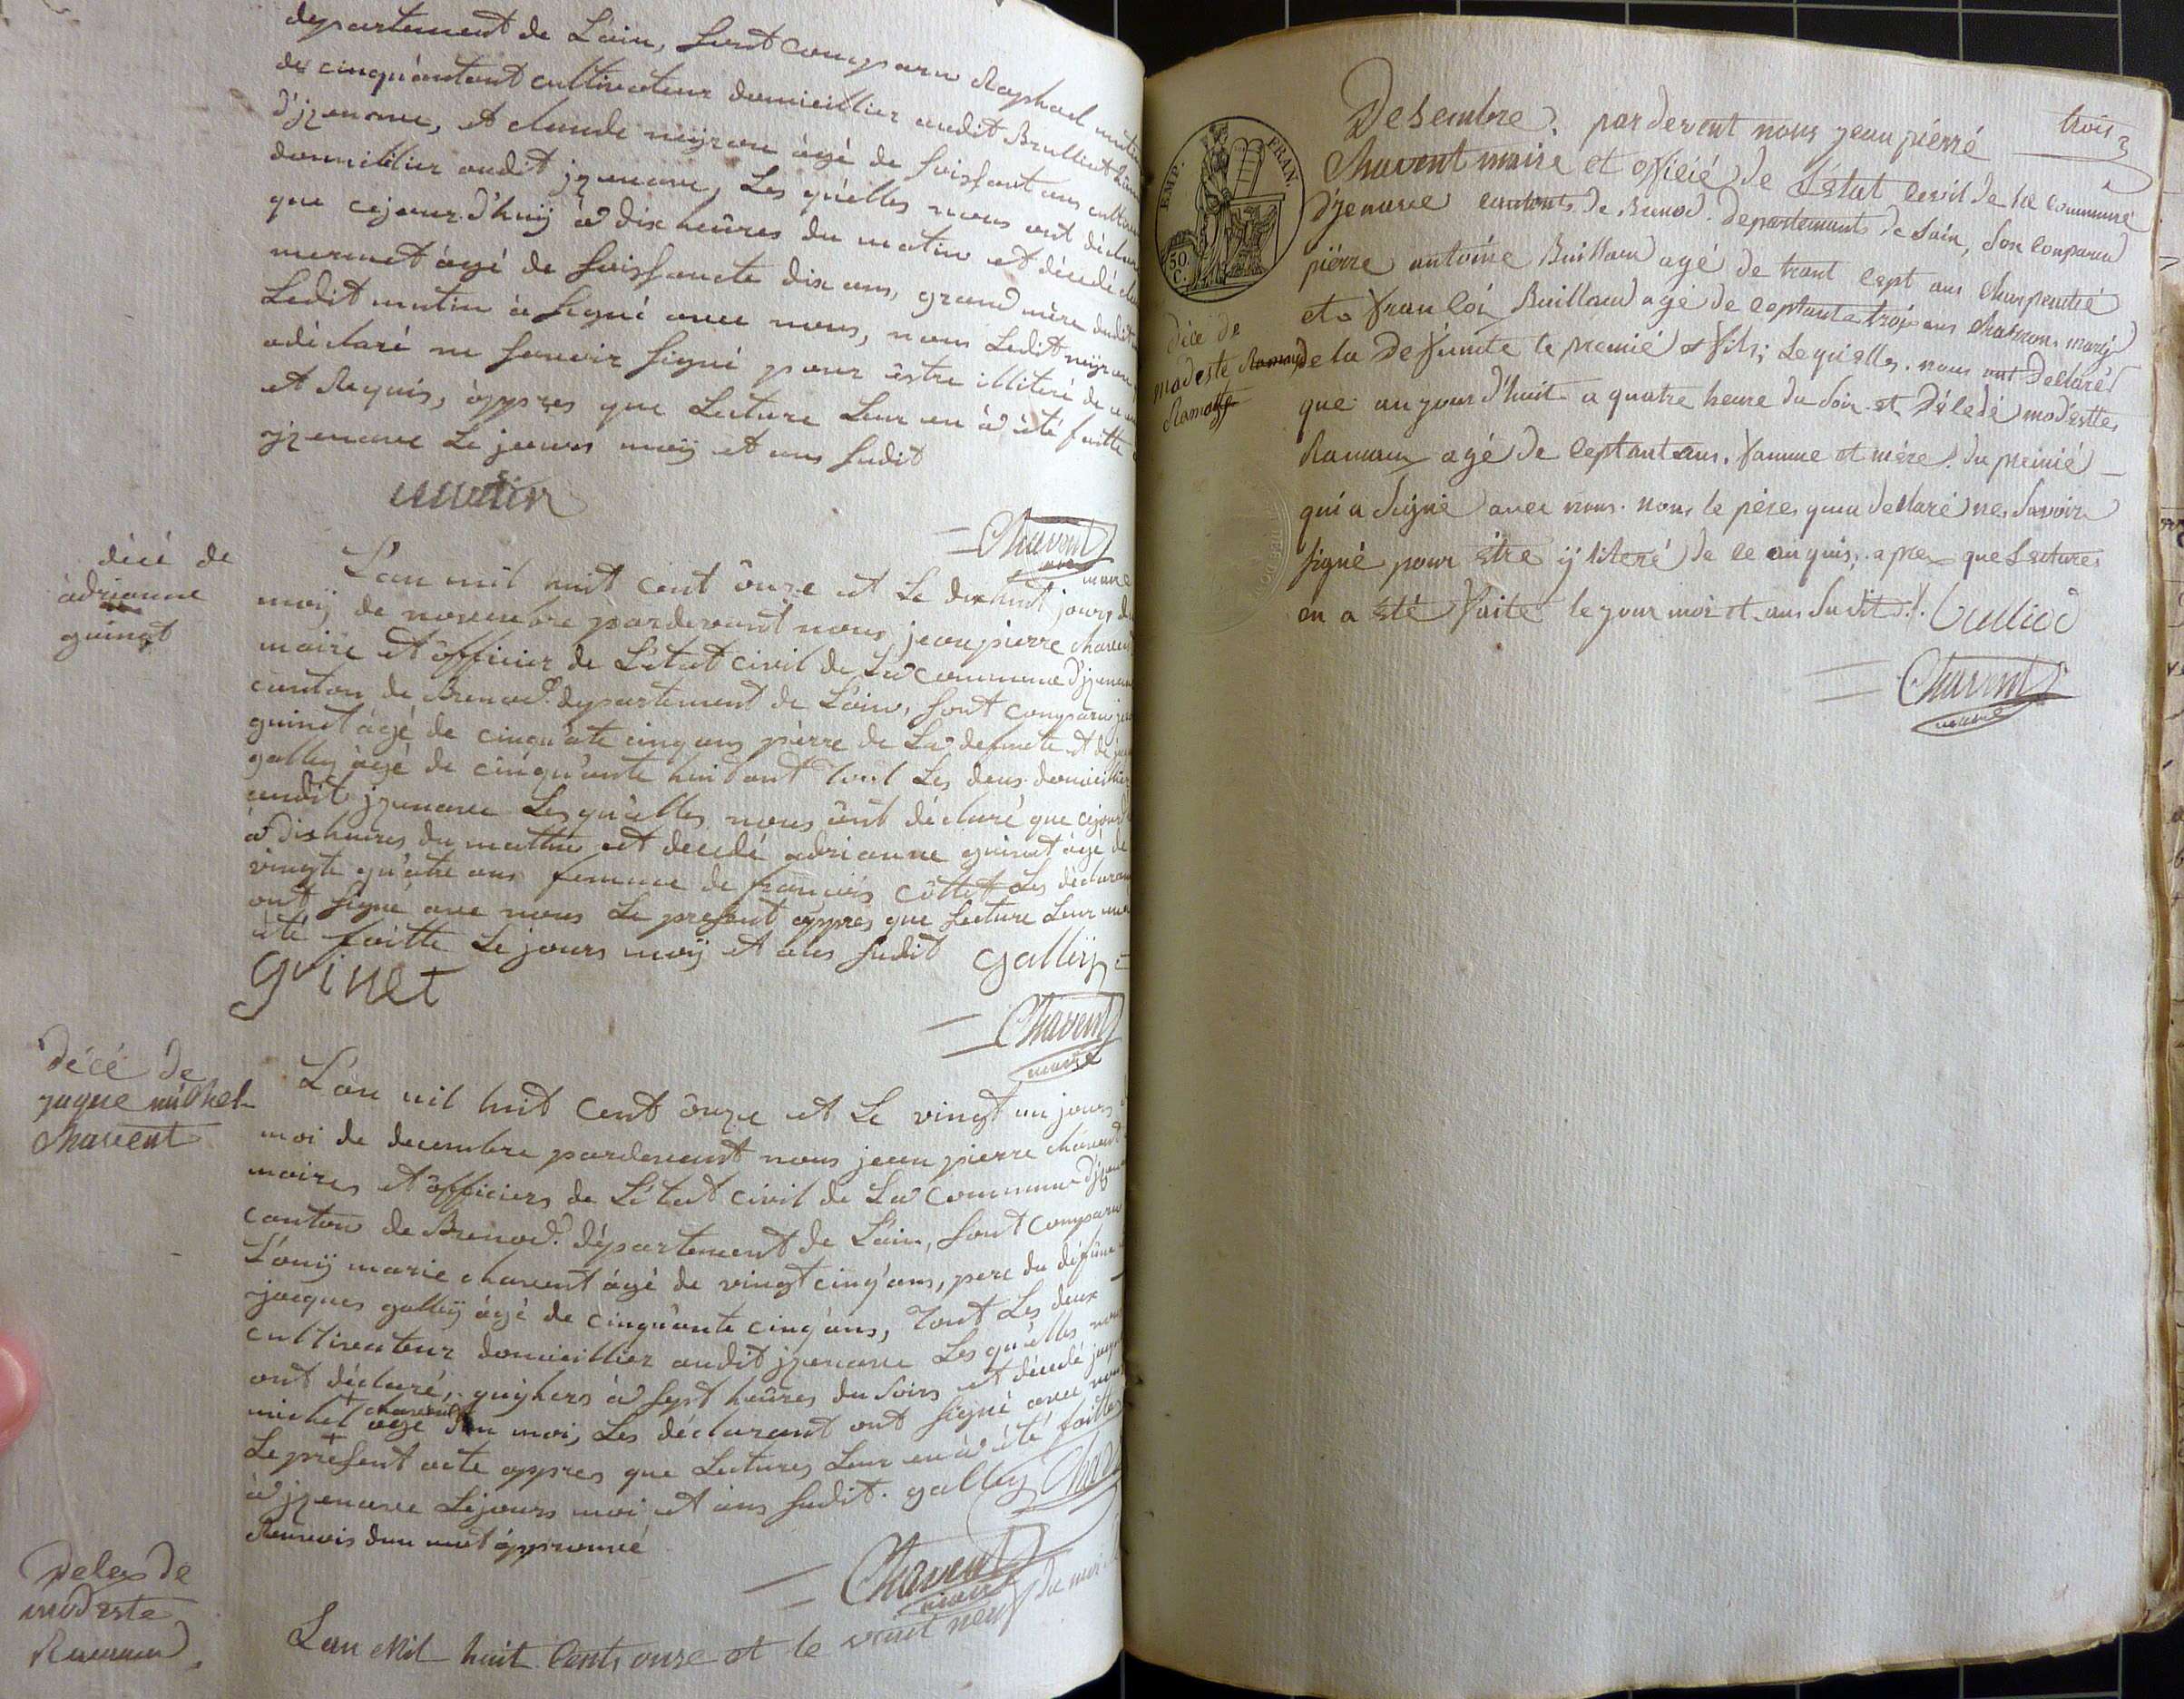 departement de L'ain, sont comparu Raphael mutin
de cinquantant cultivateur domicillier audit Brulliat hame
d'jzenave, et claude neyron àgé de soissant ans cultiva
domicilier audit jzenave, Les qu'elles nous ont déclaré
que cejour d'huij à dix heûres du matin et décedé
mermet àgé de soissancte dix ans, grand mère dudit
Ledit mutin à signé avec nous, nom Ledit neyron
adéclaré ne savoir signé pour être illiteré de ce
et Requis, àppres que Lecture Leur en à été faitte
jzenave Le jours moij et ans sudit
mutin
Chavent
maire
décé de
àdrianne
guinet
L'an mil huit cent ônze et Le dix huit jours du
moij de novembre pardevant nous jean pierre chavent
maire et officier de L'état civil de La commune d'jzenave
canton de Brenod. departement de L'ain, sont comparu
guinet àgé de cinqu'ate cinq ans pèrre de La defunte et de
galley àgé de cinqu'ante huitant tout Les deux domicillier
audit jzenave Lesqu'elles nous ônt déclaré que cejourd
à dix heures du mattin et decedé adrianne guinet àgé de
vingte qu'atre ans femme de françois côttet Les déclarant
ont signé avec nous Le present àppres que Lecture Leur en
été faitte Le jours moij et ans sudit galleij
guinet
Chavent
maire
décé de
jaque michel
chavent
L'an mil huit cent ônze et Le vingt un jours
moi de decembre pardevant nous jean pierre chavent
maires et officiers de L'état civil de La commune d'jzenave
canton de Brenod. département de L'ain, sont comparu
Louij marie chavent àgé de vingt cinq'ans, pere du défunt
jacques galleij àgé de cinqu'ante cinq'ans, tout Les deux
cultivateur domicillier audit jzenave Lesqu'elles nous
ont déclaré, qu'ÿhers à sept heûres du soirs et décedé jaque
michel chavent àgé d'un moi, Les déclarant ont signé avec nous
Le présent acte appres que Lectures Leur en à été faittes
à jzenave Lejours moi et ans sudit. galley Chavent
Renvois d'un mot àpprouvé
Chavent
maire
deles de
modeste
Ramand
Lan Mil huit Cents onze et le vint neuf du moi
trois 3
EMP. FRAN.
50 C.
Desembre. pardevent nous jean pierré
Chavent maire et officié de L'état cevil de la communé
d'jenave cantonts de Brenod. departemants de Lain, son comparud
pierre antoine Buillaud agé de trant cept ans charpentié
et franloi Buillaud agé de ceptante troi ans charron. marij
de la defunte le premié fils; Lequ'elles. nous ont Dellaré
que aujour d'huit a quatre heure du soir et Déledé modestte
Ramand agé de ceptant ans. famme et mére. du preinié
qui a Signié avec nous. nons le péres qu'a dellaré nes savoirs
signé pour être ij literé de ce anquis; a pres que Lectures
en a été faite le jour moi et ans sudit. Bulliod
Chavent
maire
déce de
modeste
Ramand